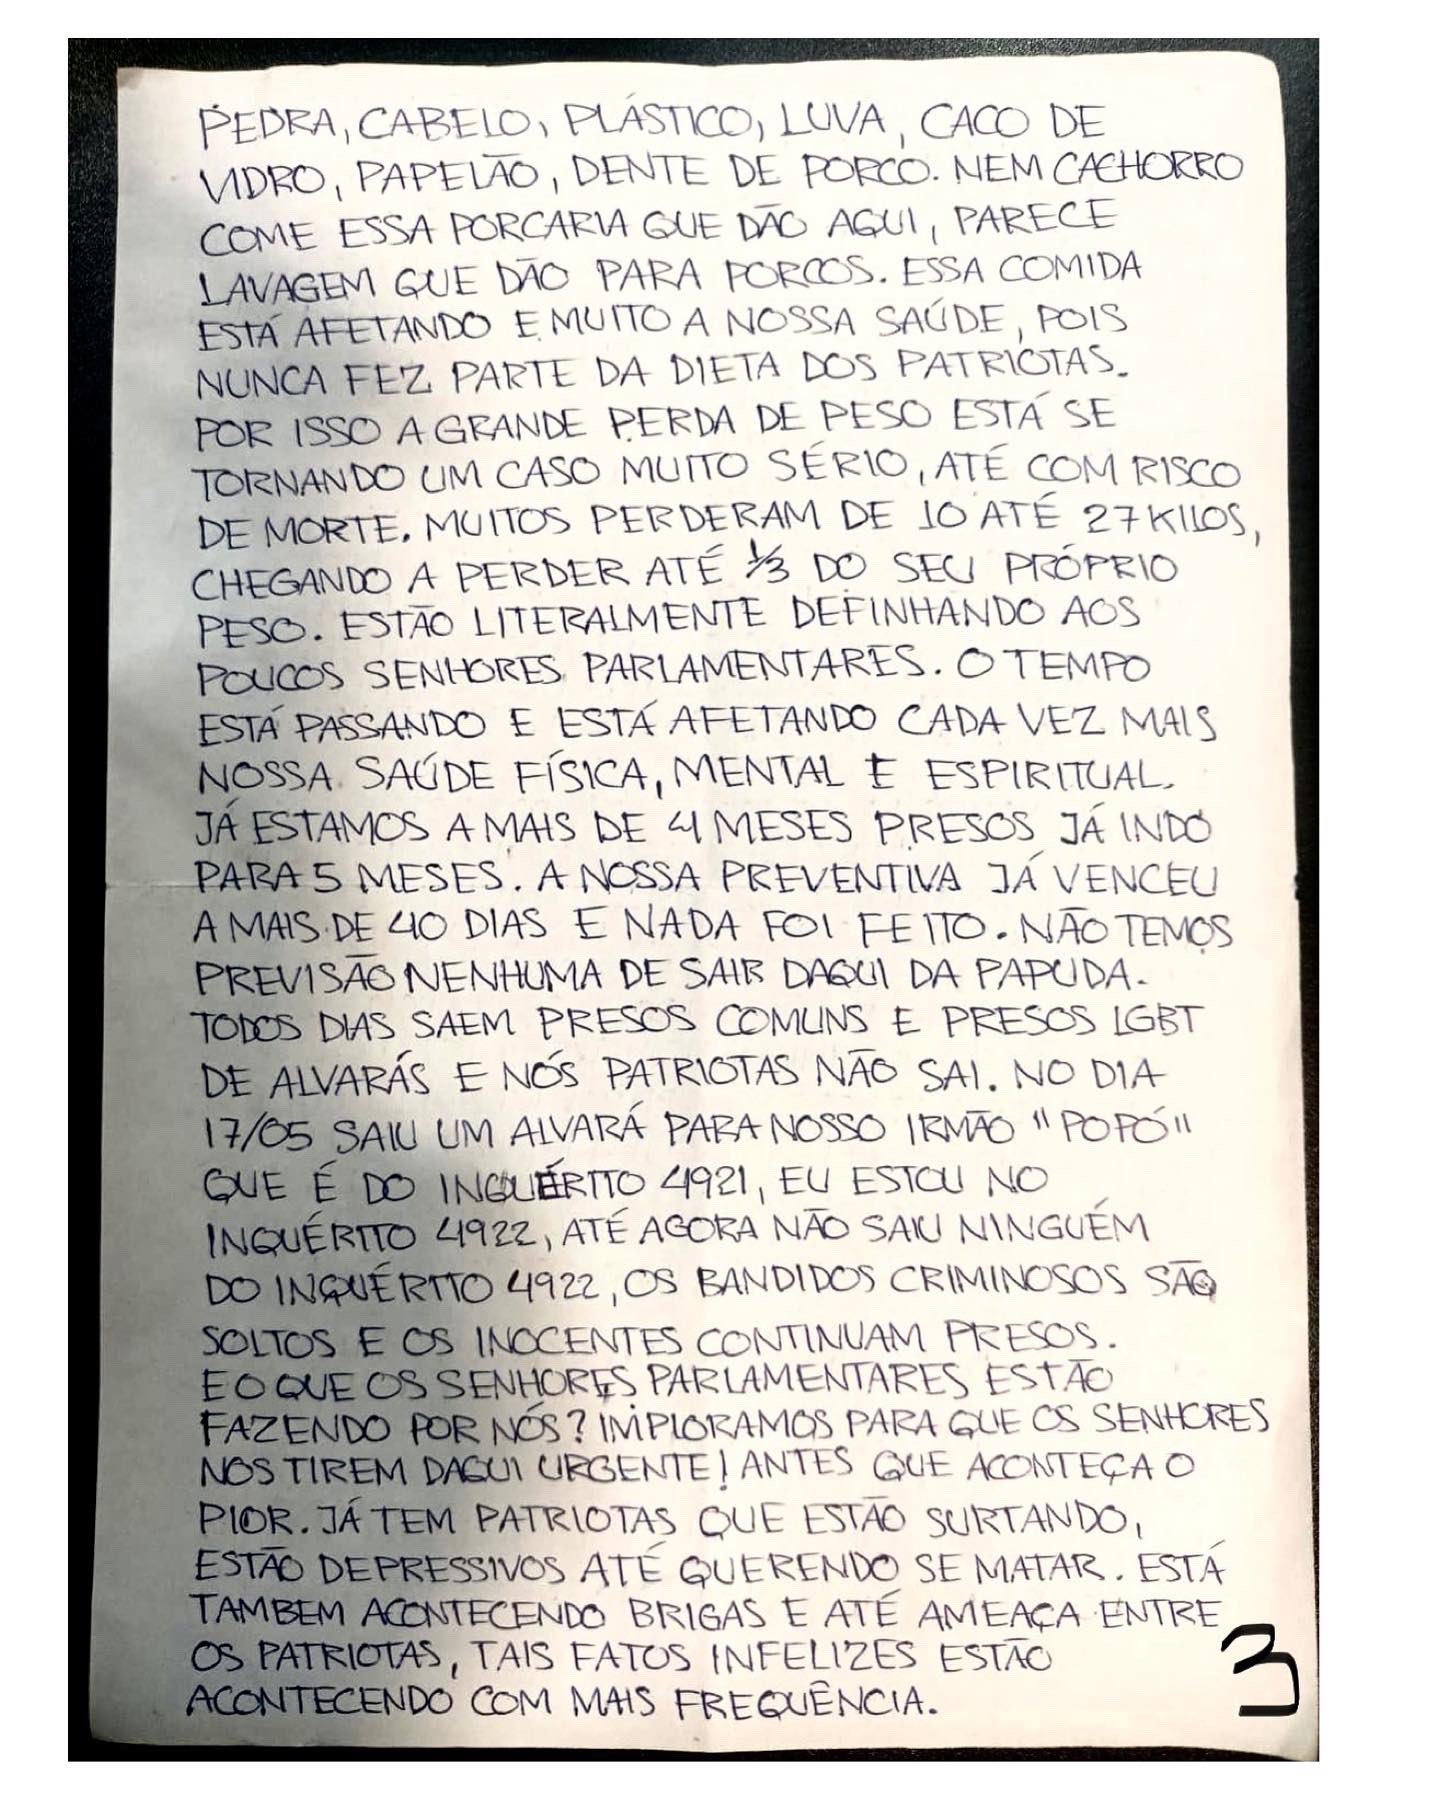 PEDRA, CABELO, PLÁSTICO, LUVA, CACO DE
VIDRO, PAPELÃO, DENTE DE PORCO. NEM CACHORRO
COME ESSA PORCARIA QUE DÃO AQUI, PARECE
LAVAGEM QUE DÃO PARA PORCOS. ESSA COMIDA
ESTÁ AFETANDO E MUITO A NOSSA SAÚDE, POIS
NUNCA FEZ PARTE DA DIETA DOS PATRIOTAS.
POR ISSO A GRANDE PERDA DE PESO ESTÁ SE
TORNANDO UM CASO MUITO SÉRIO, ATÉ COM RISCO
DE MORTE. MUITOS PERDERAM DE 10 ATÉ 27 KILOS,
CHEGANDO A PERDER ATÉ 1/3 DO SEU PRÓPRIO
PESO. ESTÃO LITERALMENTE DEFINHANDO AOS
POUCOS SENHORES PARLAMENTARES. O TEMPO
ESTÁ PASSANDO E ESTÁ AFETANDO CADA VEZ MAIS
NOSSA SAÚDE FÍSICA, MENTAL E ESPIRITUAL.
JÁ ESTAMOS A MAIS DE 4 MESES PRESOS JÁ INDO
PARA 5 MESES. A NOSSA PREVENTIVA JÁ VENCEU
A MAIS DE 40 DIAS E NADA FOI FEITO. NÃO TEMOS
PREVISÃO NENHUMA DE SAIR DAQUI DA PAPUDA.
TODOS DIAS SAEM PRESOS COMUNS E PRESOS LGBT
DE ALVARÁS E NÓS PATRIOTAS NÃO SAI. NO DIA
17/05 SAIU UM ALVARÁ PARA NOSSO IRMÃO "POPÓ"
QUE É DO INQUÉRITO 4921, EU ESTOU NO
INQUÉRITO 4922, ATÉ AGORA NÃO SAIU NINGUÉM
DO INQUÉRITO 4922, OS BANDIDOS CRIMINOSOS SÃO
SOLTOS E OS INOCENTES CONTINUAM PRESOS.
E O QUE OS SENHORES PARLAMENTARES ESTÃO
FAZENDO POR NÓS? IMPLORAMOS PARA QUE OS SENHORES
NOS TIREM DAQUI URGENTE! ANTES QUE ACONTEÇA O
PIOR. JÁ TEM PATRIOTAS QUE ESTÃO SURTANDO,
ESTÃO DEPRESSIVOS ATÉ QUERENDO SE MATAR. ESTÁ
TAMBEM ACONTECENDO BRIGAS E ATÉ AMEAÇA ENTRE
OS PATRIOTAS, TAIS FATOS INFELIZES ESTÃO
ACONTECENDO COM MAIS FREQUÊNCIA.
3